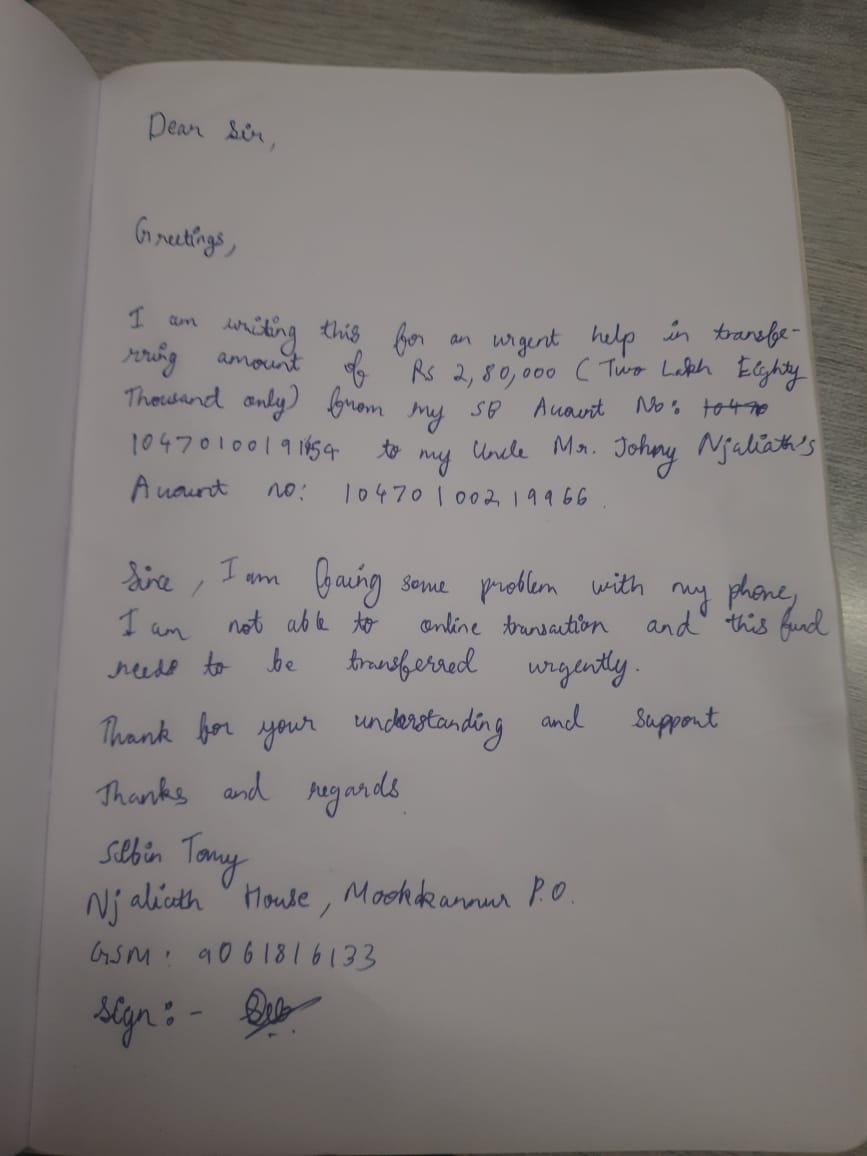 Dear Sir,
Greetings,
I am writing this for an urgent help in transfe-
rring amount of Rs 2,80,000 (Two Lakh Eighty
Thousand only) from my SB Account No: 10470
to my Uncle Mr. Johny Njaliath's
Account no: 10470100219966.
Since, I am facing some problem with my phone,
I am not able to online transaction and this fund
needs to be transferred urgently.
Thank for your understanding and support
Thanks and regards
Selbin Tomy
Njaliath House, Mookkannur P.O.
GSM: 9061816133
Sign:-